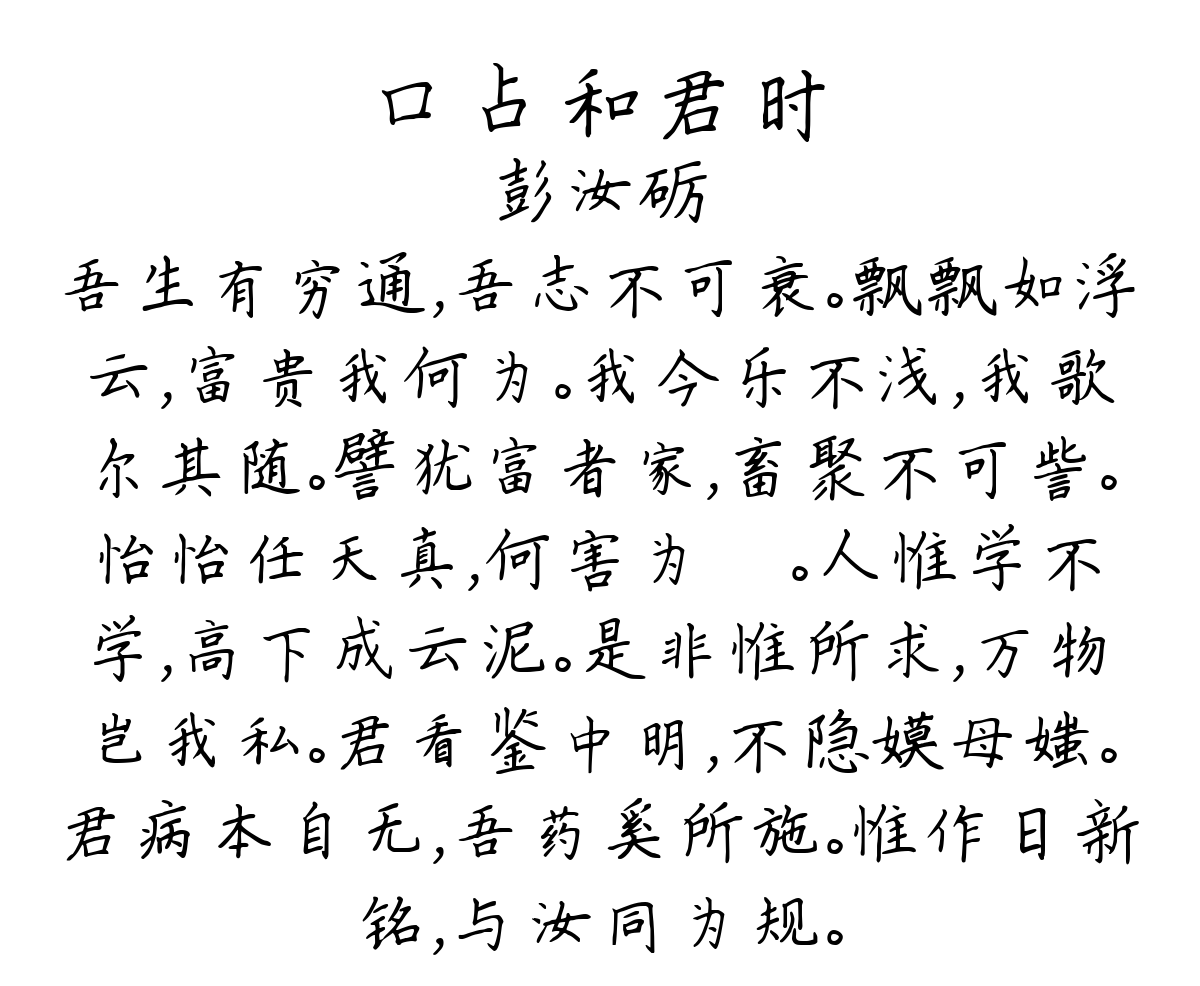 口占和君时
彭汝砺
吾生有穷通,吾志不可衰。飘飘如浮
云,富贵我何为。我今乐不浅,我歌
尔其随。譬犹富者家,畜聚不可訾。
怡怡任天真,何害为 。人惟学不
学,高下成云泥。是非惟所求,万物
岂我私。君看鉴中明,不隐嫫母媸。
君病本自无,吾药奚所施。惟作日新
铭,与汝同为规。